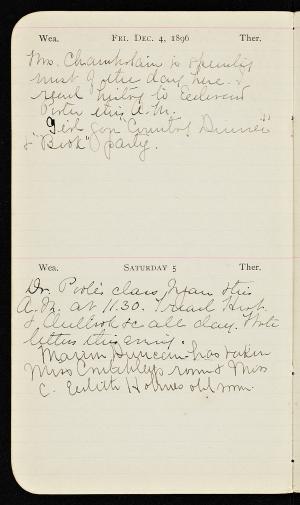 Wea. FRI. DEC. 4, 1896 Ther.
Mrs. Chamberlain is spending
most of the day here. I
read history to Edward
Porter this A.M.
Girls gen "Country Dinner"
& "Book" party.
Wea. SATURDAY 5 Ther.
Dr. Poole's class began this
A.M. at 11.30. I read
& &c all day. Wrote
letters this evening.
Marion Duncan has taken
Miss room & Miss
C. Edith Holmes old room.